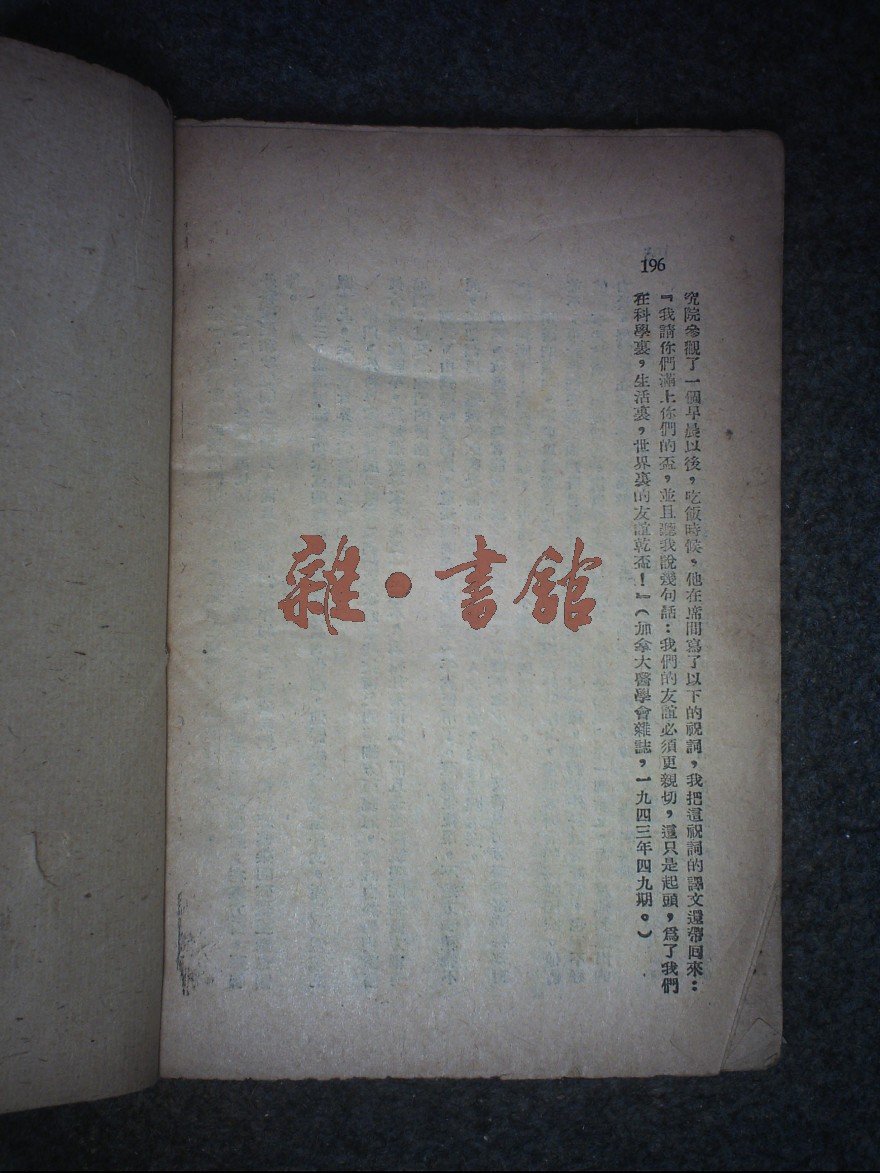 196
究院參觀了一個早晨以後，吃飯時候，他在席間寫了以下的祝詞，我把這祝詞的譯文還帶回來：
『我請你們滿上你們的盃，並且聽我說幾句話：我們的友誼必須更親切，這只是起頭，爲了我們
在科學裏，生活裏，世界裏的友誼乾盃！』（加拿大醫學會雜誌，一九四三年四九期。）
雜·書館